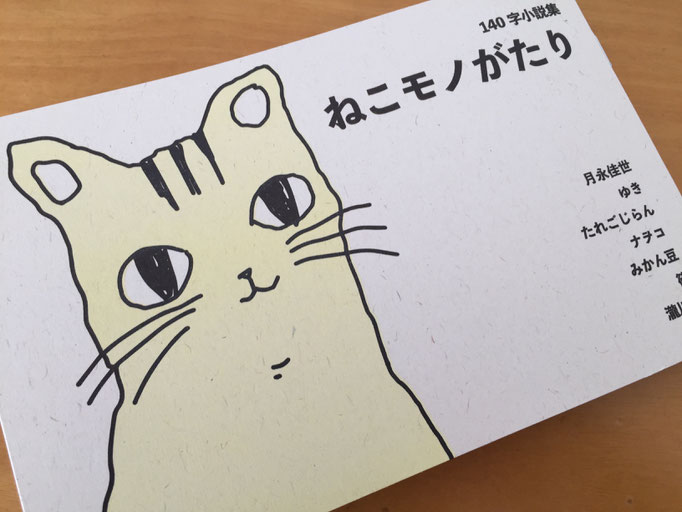 140字小説集
ねこモノがたり
月永佳世
ゆき
たれごじらん
ナヲコ
みかん豆